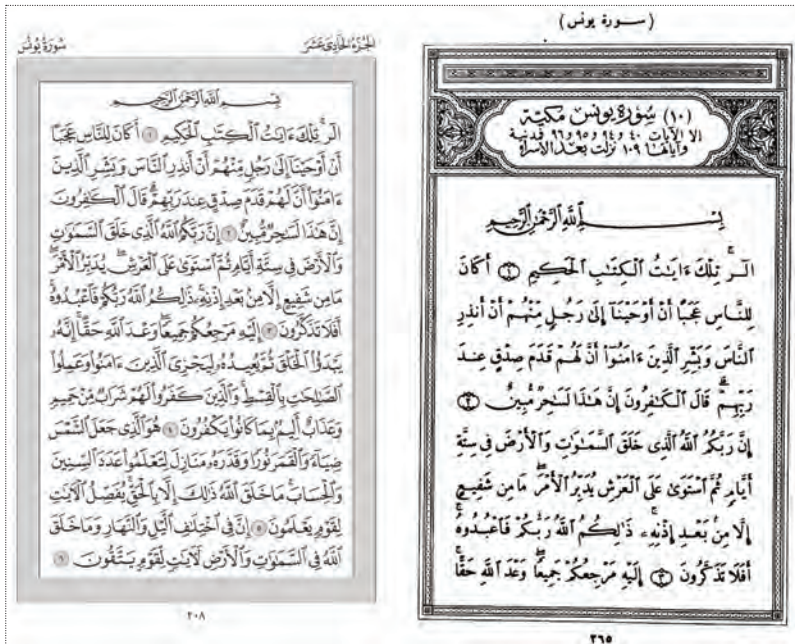 (سورة يونس)
(١٠) سُورَة يُونس مَكيّة
إلا الآيات ٤٠ و٩٤ و٩٥ و٩٦ فمدنية
وآياتها ١٠٩ نزلت بعد الإسراء
بِسْمِ ٱللَّهِ ٱلرَّحْمَٰنِ ٱلرَّحِيمِ
الٓر تِلْكَ ءَايَٰتُ ٱلْكِتَٰبِ ٱلْحَكِيمِ ١ أَكَانَ
لِلنَّاسِ عَجَبًا أَنْ أَوْحَيْنَآ إِلَىٰ رَجُلٍ مِّنْهُمْ أَنْ أَنذِرِ
ٱلنَّاسَ وَبَشِّرِ ٱلَّذِينَ ءَامَنُوٓا۟ أَنَّ لَهُمْ قَدَمَ صِدْقٍ عِندَ
رَبِّهِمْ ۗ قَالَ ٱلْكَٰفِرُونَ إِنَّ هَٰذَا لَسَٰحِرٌ مُّبِينٌ ٢
إِنَّ رَبَّكُمُ ٱللَّهُ ٱلَّذِى خَلَقَ ٱلسَّمَٰوَٰتِ وَٱلْأَرْضَ فِى سِتَّةِ
أَيَّامٍ ثُمَّ ٱسْتَوَىٰ عَلَى ٱلْعَرْشِ ۖ يُدَبِّرُ ٱلْأَمْرَ ۖ مَا مِن شَفِيعٍ
إِلَّا مِنۢ بَعْدِ إِذْنِهِۦ ۚ ذَٰلِكُمُ ٱللَّهُ رَبُّكُمْ فَٱعْبُدُوهُ ۚ
أَفَلَا تَذَكَّرُونَ ٣ إِلَيْهِ مَرْجِعُكُمْ جَمِيعًا ۖ وَعْدَ ٱللَّهِ حَقًّا ۚ
٢٦٥
الجُزْءُ الحَادِي عَشَرَ
سُورَةُ يُونُسَ
بِسْمِ ٱللَّهِ ٱلرَّحْمَٰنِ ٱلرَّحِيمِ
الٓر ۚ تِلْكَ ءَايَٰتُ ٱلْكِتَٰبِ ٱلْحَكِيمِ ١ أَكَانَ لِلنَّاسِ عَجَبًا
أَنْ أَوْحَيْنَآ إِلَىٰ رَجُلٍ مِّنْهُمْ أَنْ أَنذِرِ ٱلنَّاسَ وَبَشِّرِ ٱلَّذِينَ
ءَامَنُوٓا۟ أَنَّ لَهُمْ قَدَمَ صِدْقٍ عِندَ رَبِّهِمْ ۗ قَالَ ٱلْكَٰفِرُونَ
إِنَّ هَٰذَا لَسَٰحِرٌ مُّبِينٌ ٢ إِنَّ رَبَّكُمُ ٱللَّهُ ٱلَّذِى خَلَقَ ٱلسَّمَٰوَٰتِ
وَٱلْأَرْضَ فِى سِتَّةِ أَيَّامٍ ثُمَّ ٱسْتَوَىٰ عَلَى ٱلْعَرْشِ ۖ يُدَبِّرُ ٱلْأَمْرَ ۖ
مَا مِن شَفِيعٍ إِلَّا مِنۢ بَعْدِ إِذْنِهِۦ ۚ ذَٰلِكُمُ ٱللَّهُ رَبُّكُمْ فَٱعْبُدُوهُ ۚ
أَفَلَا تَذَكَّرُونَ ٣ إِلَيْهِ مَرْجِعُكُمْ جَمِيعًا ۖ وَعْدَ ٱللَّهِ حَقًّا ۚ إِنَّهُۥ
يَبْدَؤُا۟ ٱلْخَلْقَ ثُمَّ يُعِيدُهُۥ لِيَجْزِىَ ٱلَّذِينَ ءَامَنُوا۟ وَعَمِلُوا۟
ٱلصَّٰلِحَٰتِ بِٱلْقِسْطِ ۚ وَٱلَّذِينَ كَفَرُوا۟ لَهُمْ شَرَابٌ مِّنْ حَمِيمٍ
وَعَذَابٌ أَلِيمٌۢ بِمَا كَانُوا۟ يَكْفُرُونَ ٤ هُوَ ٱلَّذِى جَعَلَ ٱلشَّمْسَ
ضِيَآءً وَٱلْقَمَرَ نُورًا وَقَدَّرَهُۥ مَنَازِلَ لِتَعْلَمُوا۟ عَدَدَ ٱلسِّنِينَ
وَٱلْحِسَابَ ۚ مَا خَلَقَ ٱللَّهُ ذَٰلِكَ إِلَّا بِٱلْحَقِّ ۚ يُفَصِّلُ ٱلْءَايَٰتِ
لِقَوْمٍ يَعْلَمُونَ ٥ إِنَّ فِى ٱخْتِلَٰفِ ٱلَّيْلِ وَٱلنَّهَارِ وَمَا خَلَقَ
ٱللَّهُ فِى ٱلسَّمَٰوَٰتِ وَٱلْأَرْضِ لَءَايَٰتٍ لِّقَوْمٍ يَتَّقُونَ ٦
٢٠٨